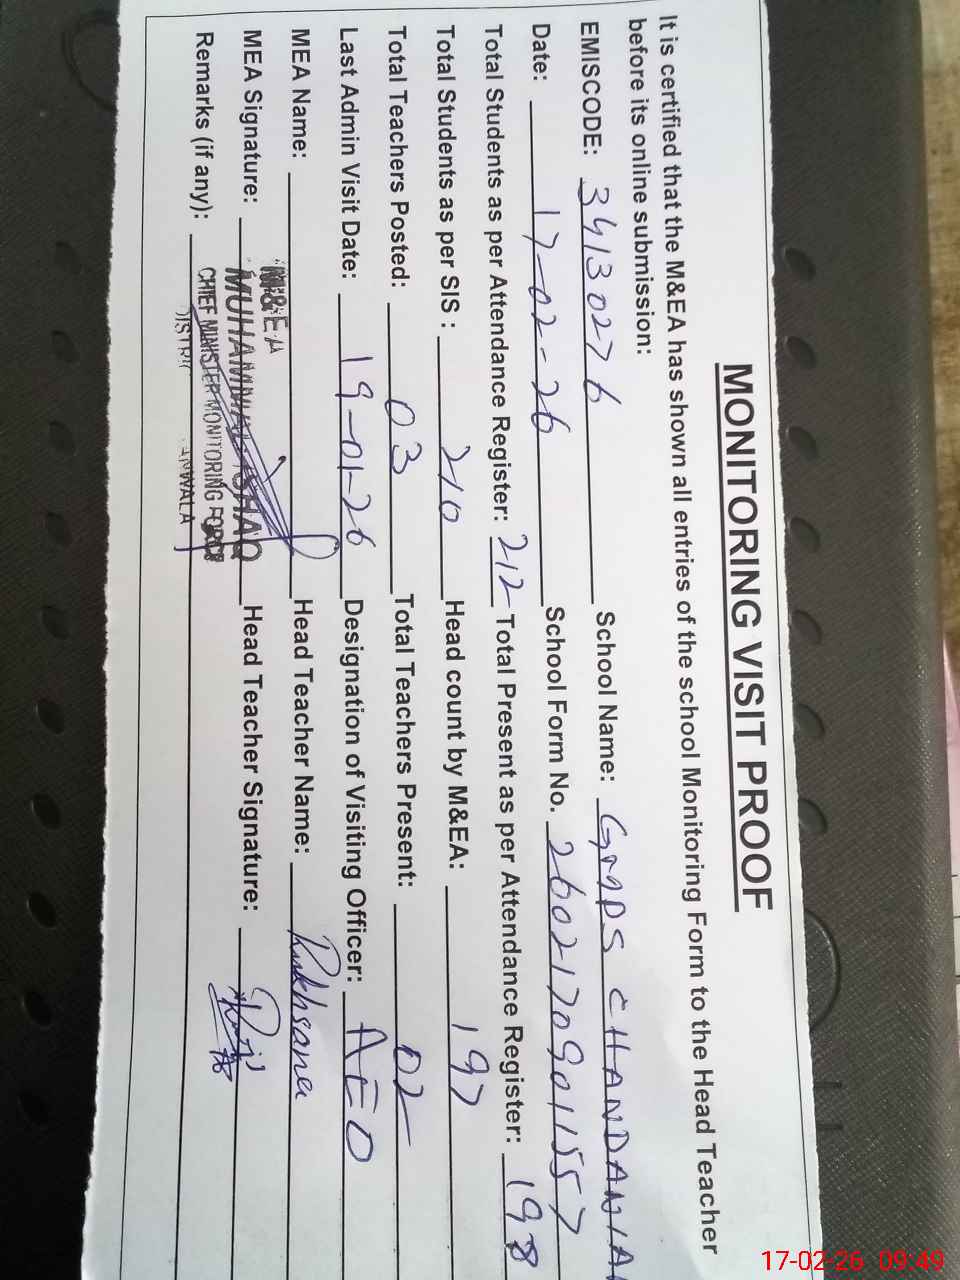 MONITORING VISIT PROOF
It is certified that the M&EA has shown all entries of the school Monitoring Form to the Head Teacher
before its online submission:
EMISCODE: 34130276 School Name: GMPS CHANDANIA
Date: 17-02-26 School Form No. 26021709011557
Total Students as per Attendance Register: 212 Total Present as per Attendance Register: 198
Total Students as per SIS : 210 Head count by M&EA: 197
Total Teachers Posted: 03 Total Teachers Present: 02
Last Admin Visit Date: 19-01-26 Designation of Visiting Officer: AEO
MEA Name: M&EA Head Teacher Name: Rukhsana
MEA Signature: MUHAMMAD ISHAQ Head Teacher Signature:
Remarks (if any): CHIEF MINISTER MONITORING FORCE
17-02-26 09:49